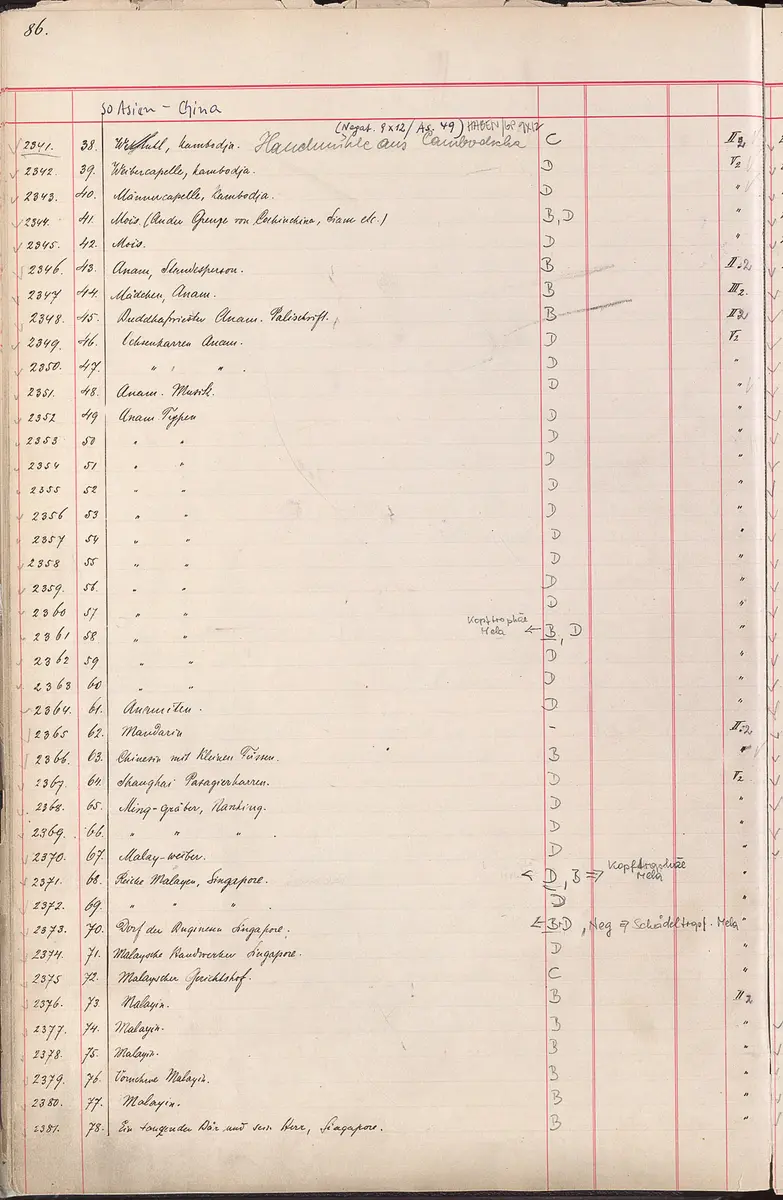 86.
SO Asien - China
(Negat. 9x12/ As. 49) HABEN/GP 9x12
2341. 38. Kambodja. Handmühle aus Cambodscha C II2
2342. 39. Weibercapelle, Kambodja. D V2
2343. 40. Männercapelle, Kambodja. D "
2344. 41. Mois. (An der Grenze von Cochinchina, Siam etc.) B, D "
2345. 42. Mois. D "
2346. 43. Anam, Standesperson. B II.2
2347 44. Mädchen, Anam. B III2.
2348. 45. Buddhapriester Anam. Palischrift. B II2
2349. 46. Ochsenkarren Anam. D V2
2350. 47. " " " D "
2351. 48. Anam. Musik. D "
2352 49 Anam Typen D "
2353 50 " " D "
2354 51 " " D "
2355 52 " " D "
2356 53 " " D "
2357 54 " " D "
2358 55 " " D "
2359. 56. " " D "
2360 57 " " D "
2361 58 " " Kopftrophäe Mela ← B, D "
2362 59 " " D "
2363 60 " " D "
2364. 61. Anamiten. D "
2365 62. Mandarin - II.2
2366. 63. Chinesin mit kleinen Füssen. B "
2367. 64. Shanghai Passagierkarren. D V2
2368. 65. Ming-Gräber, Nanking. D "
2369. 66. " " " D "
2370. 67. Malay-weiber. D "
2371. 68. Reiche Malayen, Singapore. ← D, B ⇒ Kopftrophäe Mela "
2372. 69. " " " D "
2373. 70. Dorf der Singapore. ← B D, Neg ⇒ Schädeltropf. Mela "
2374. 71. Malaysche Handwerker Singapore. D "
2375 72. Malayscher Gerichtshof. C "
2376. 73. Malayin. B II2
2377. 74. Malayin. B "
2378. 75. Malayin. B "
2379. 76. Vornehme Malayin. B "
2380. 77. Malayin. B "
2381. 78. Ein tanzender Bär und sein Herr, Singapore. B "